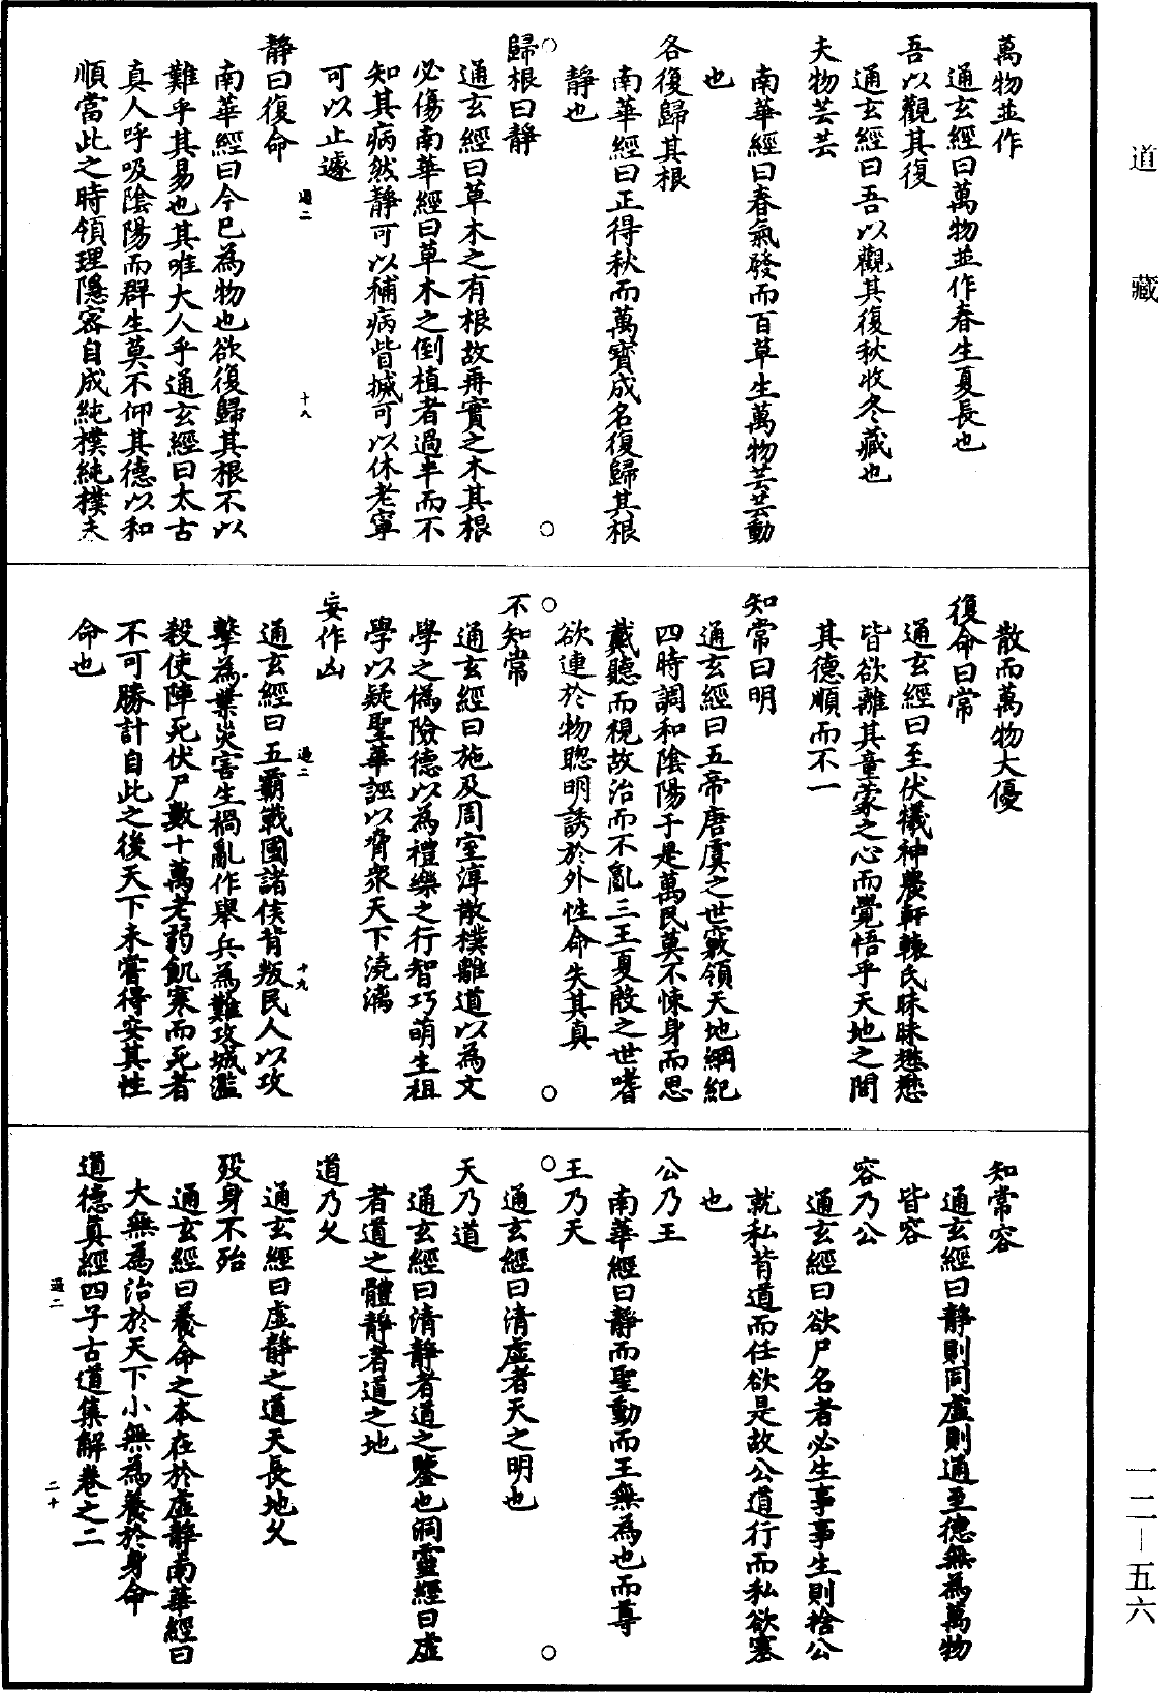 道藏
萬物並作
通玄經曰萬物並作春生夏長也
吾以觀其復
通玄經曰吾以觀其復秋收冬藏也
夫物芸芸
南華經曰春氣發而百草生萬物芸芸動
也
各復歸其根
南華經曰正得秋而萬寶成名復歸其根
靜也
歸根曰靜
通玄經曰草木之有根故再實之木其根
必傷南華經曰草木之倒植者過半而不
知其病然靜可以補病眥搣可以休老寧
可以止遽
過二 十八
靜曰復命
南華經曰今已為物也欲復歸其根不以
難乎其易也其唯大人乎通玄經曰太古
真人呼吸陰陽而群生莫不仰其德以和
順當此之時領理隱密自成純樸純樸未
散而萬物大優
復命曰常
通玄經曰至伏犧神農軒轅氏昧昧懋懋
皆欲離其童蒙之心而覺悟乎天地之間
其德順而不一
知常曰明
通玄經曰五帝唐虞之世竅領天地綱紀
四時調和陰陽于是萬民莫不悚身而思
戴聽而視故治而不亂三王夏殷之世嗜
欲連於物聰明誘於外性命失其真
不知常
通玄經曰施及周室淳散樸離道以為文
學之偽險德以為禮樂之行智巧萌生徂
學以疑聖華誣以脅眾天下澆漓
妄作凶
過二 十九
通玄經曰五霸戰國諸侯背叛民人以攻
擊為業災害生禍亂作舉兵為難攻城濫
殺使陣死伏尸數十萬老弱飢寒而死者
不可勝計自此之後天下未嘗得安其性
命也
知常容
通玄經曰靜則同虛則通至德無為萬物
皆容
容乃公
通玄經曰欲尸名者必生事事生則捨公
就私背道而任欲是故公道行而私欲塞
也
公乃王
南華經曰靜而聖動而王無為也而尊
王乃天
通玄經曰清虛者天之明也
天乃道
通玄經曰清靜者道之鑒也洞靈經曰虛
者道之體靜者道之地
道乃久
通玄經曰虛靜之道天長地久
歿身不殆
通玄經曰養命之本在於虛靜南華經曰
大無為治於天下小無為養於身命
過二 二十
道德真經四子古道集解卷之二
一二—五六